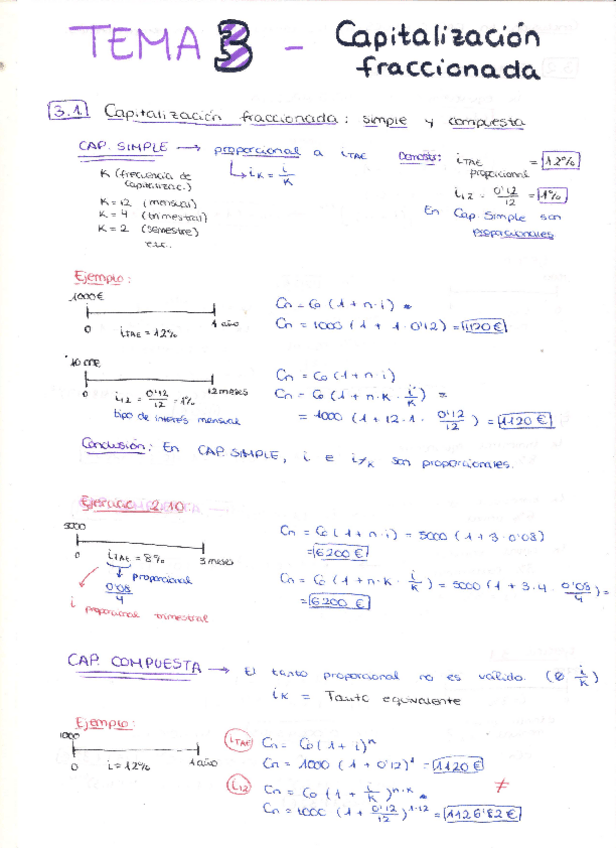 TEMA 3 - Capitalización
fraccionada
3.1 Capitalización fraccionada: simple y compuesta
CAP. SIMPLE → proporcional a iTAE
K (frecuencia de
capitalizac.)
K = 12 (mensual)
K = 4 (trimestral)
K = 2 (semestre)
etc..
iK = i/K
Demostr: iTAE = 12%
proporcional
i12 = 0'12/12 = 1%
En Cap. Simple son
proporcionales
Ejemplo:
1000€
0 iTAE = 12% 1 año
Cn = Co (1 + n·i) =
Cn = 1000 (1 + 1·0'12) = 1120€
0 i12 = 0'12/12 = 1% 12 meses
tipo de interés mensual
Cn = Co (1 + n·i)
Cn = Co (1 + n·K· i/K) =
= 1000 (1 + 12·1· 0'12/12) = 1120€
Conclusión: En CAP. SIMPLE, i e i/K son proporcionales.
Ejercicio 2.10
5000
0 iTAE = 8% 3 meses
proporcional
0'08/4
i proporcional trimestral
Cn = Co (1 + n·i) = 5000 (1 + 3·0'08)
= 6200€
Cn = Co (1 + n·K· i/K) = 5000 (1 + 3·4· 0'08/4) =
= 6200€
CAP. COMPUESTA → El tanto proporcional no es válido. (∅ i/K)
iK = Tanto equivalente
Ejemplo:
1000
0 i = 12% 1 año
iTAE Cn = Co (1 + i)ⁿ
Cn = 1000 (1 + 0'12)¹ = 1120€
i12 Cn = Co (1 + i/K)ⁿ·ᴷ = ≠
Cn = 1000 (1 + 0'12/12)¹·¹² = 1126'82€